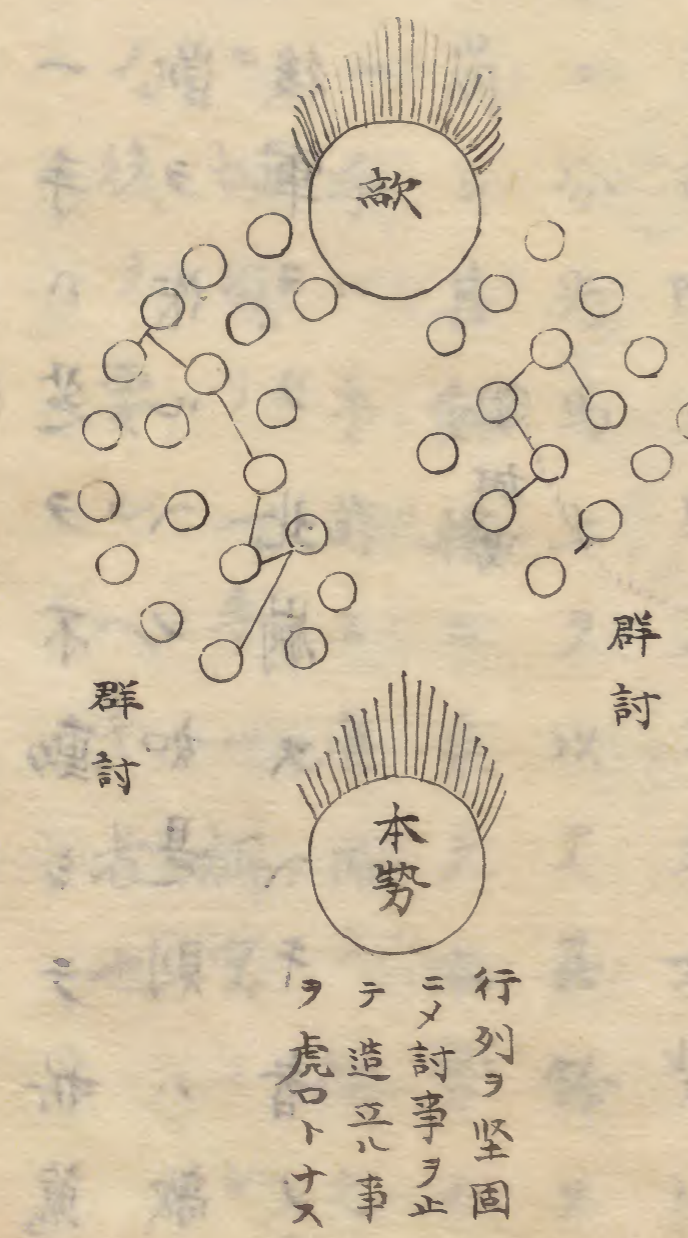 歒
群討
群討
本勢
行列ヲ堅固
ニメ討事ヲ止
テ造立ル事
ヲ虎口トナス